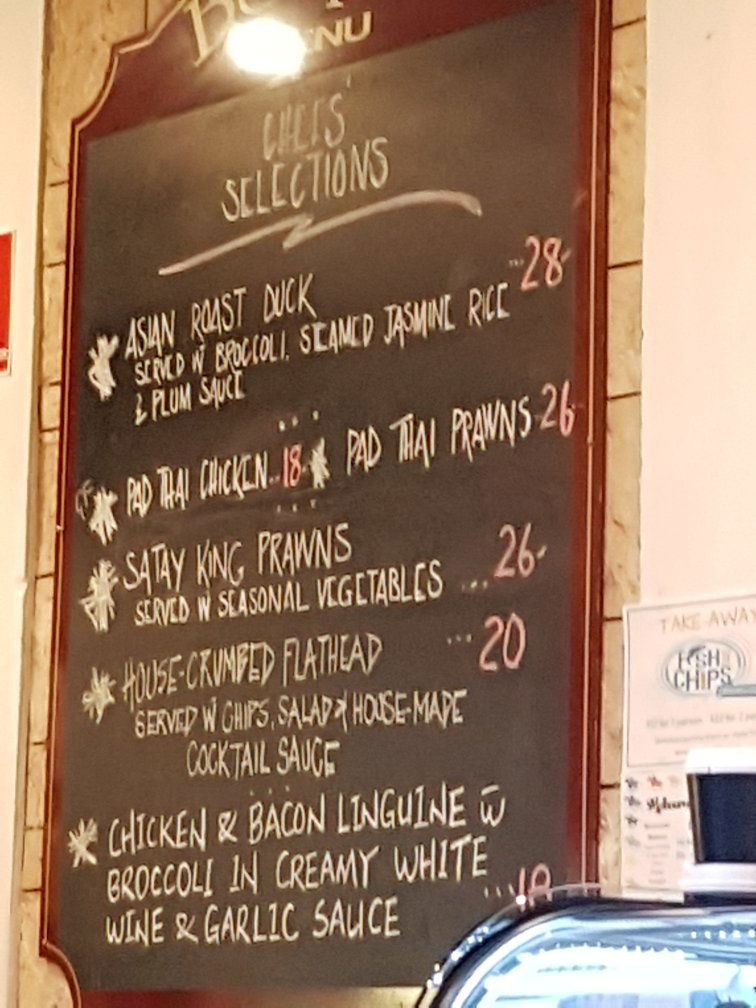 MENU
CHEFS'
SELECTIONS
ASIAN ROAST DUCK ...28-
SERVED W BROCCOLI, SEAMED JASMINE RICE
& PLUM SAUCE
...
GF PAD THAI CHICKEN..18- PAD THAI PRAWNS-26-
...
SATAY KING PRAWNS
SERVED W SEASONAL VEGETABLES ...26-
HOUSE-CRUMBED FLATHEAD ...20
SERVED W CHIPS, SALAD & HOUSE-MADE
COCKTAIL SAUCE
...
CHICKEN & BACON LINGUINE W
BROCCOLI IN CREAMY WHITE
WINE & GARLIC SAUCE
TAKE AWAY
FISH
CHIPS